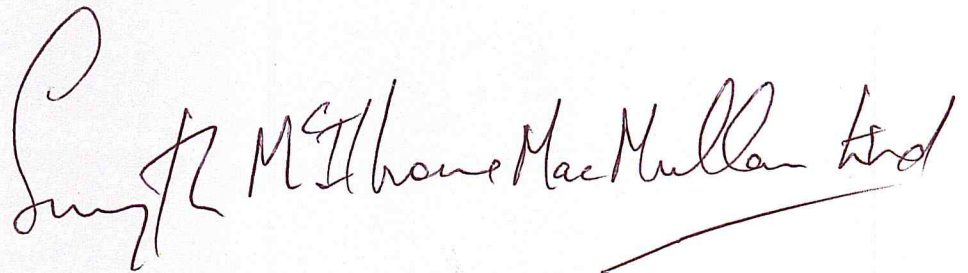 Smyth McIlhone MacMullan Ltd